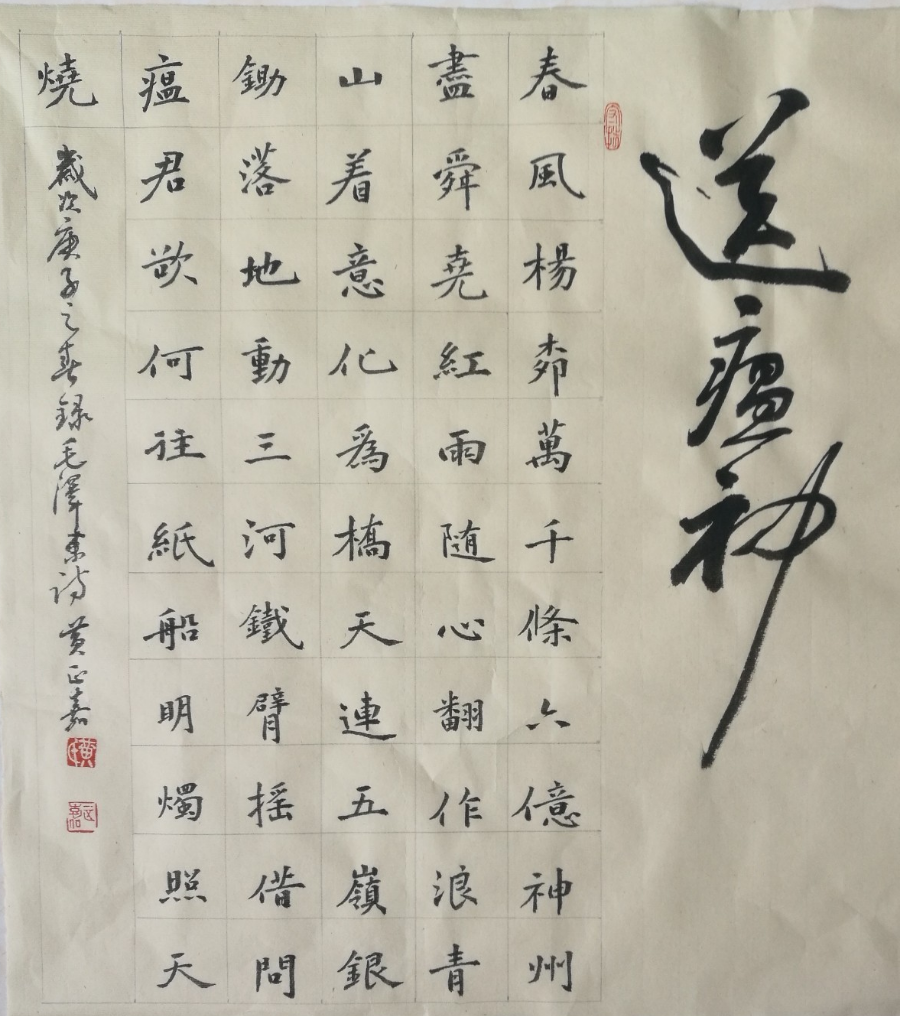 送瘟神
春風楊柳萬千條六億神州
盡舜堯紅雨随心翻作浪青
山着意化為橋天連五嶺銀
鋤落地動三河鐵臂摇借問
瘟君欲何往紙船明燭照天
燒
歲次庚子之春録毛澤東詩黄正嘉